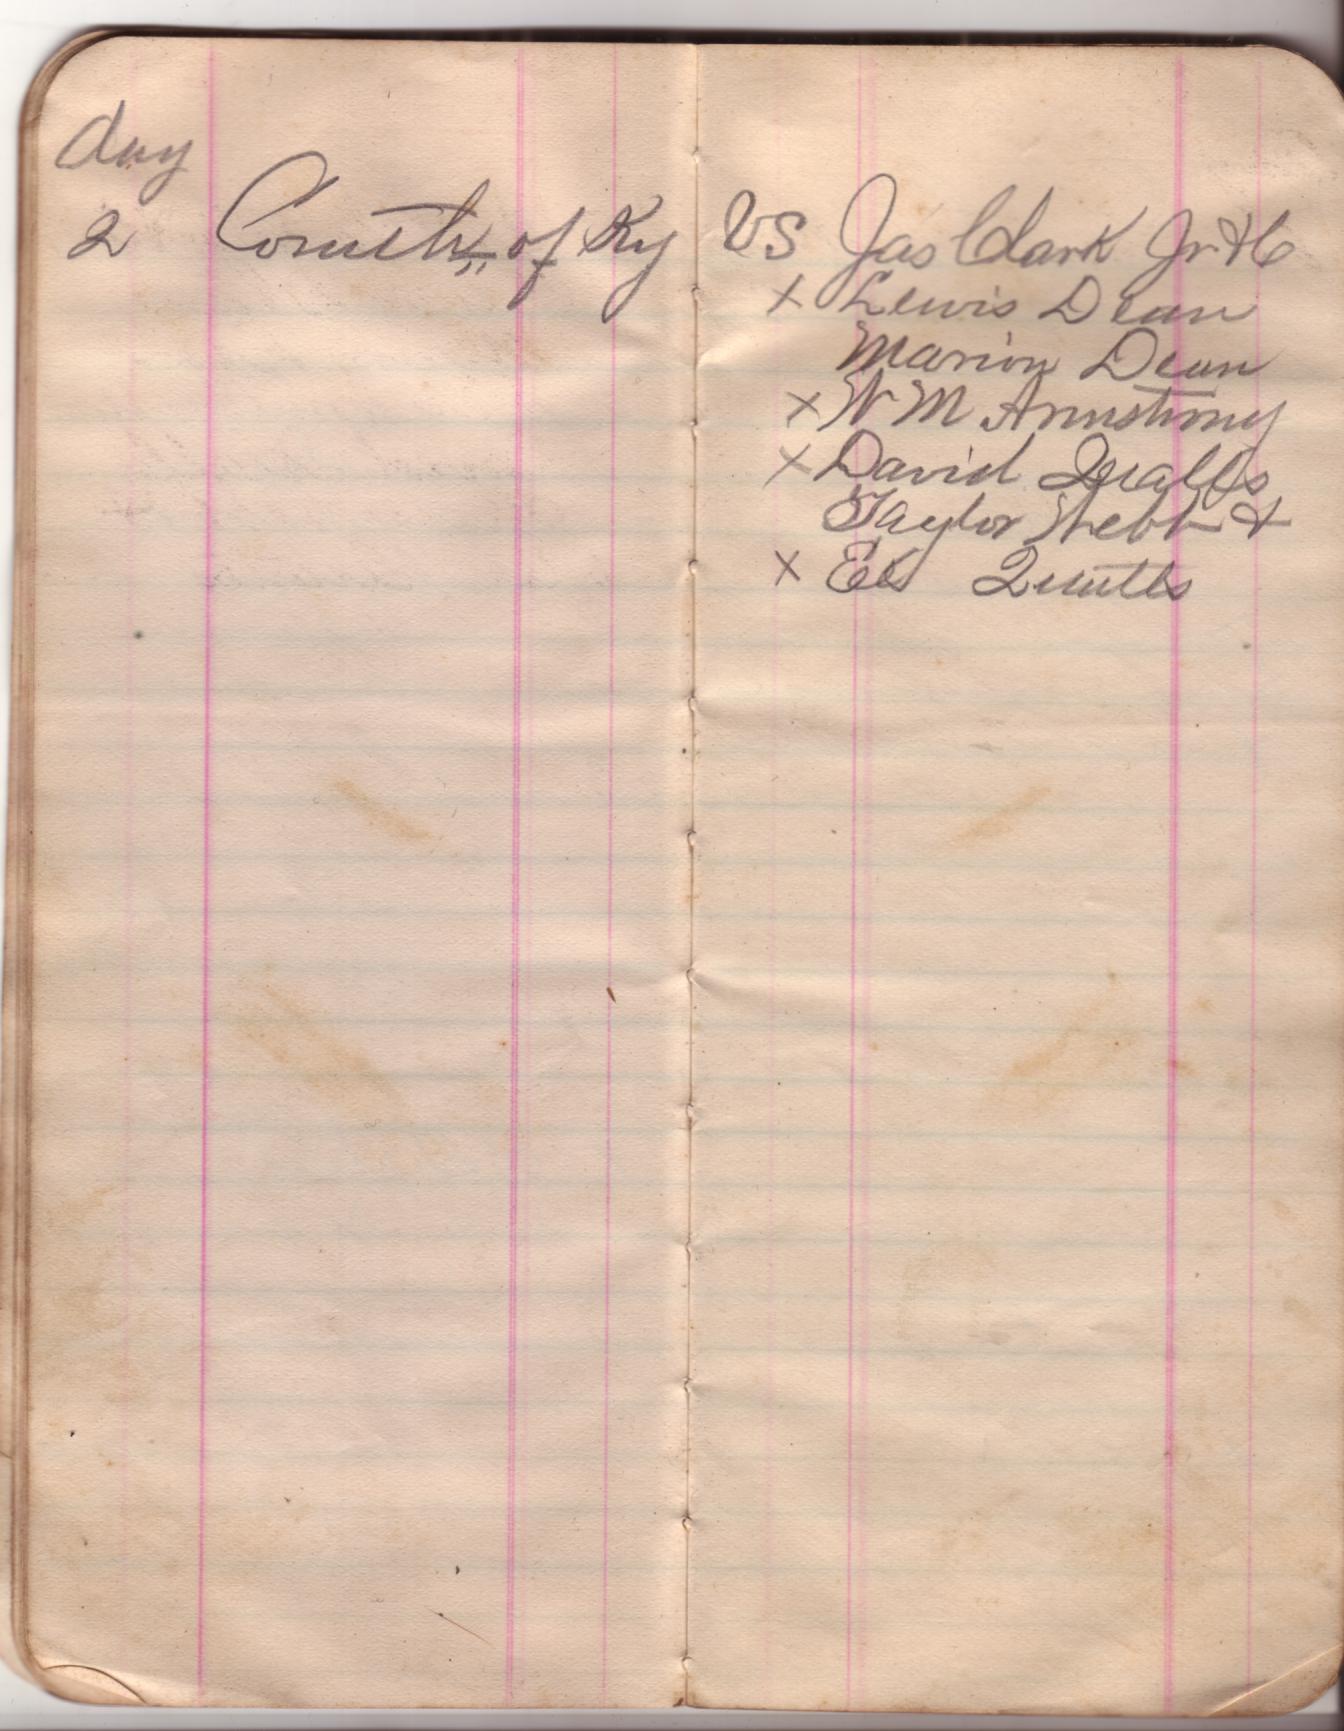 day
2 Comwlth of Ky VS Jas Clark Jr &C
x Lewis Dean
Marion Dean
x W M Armstrong
x David Qualls
Taylor Webb &
x Es